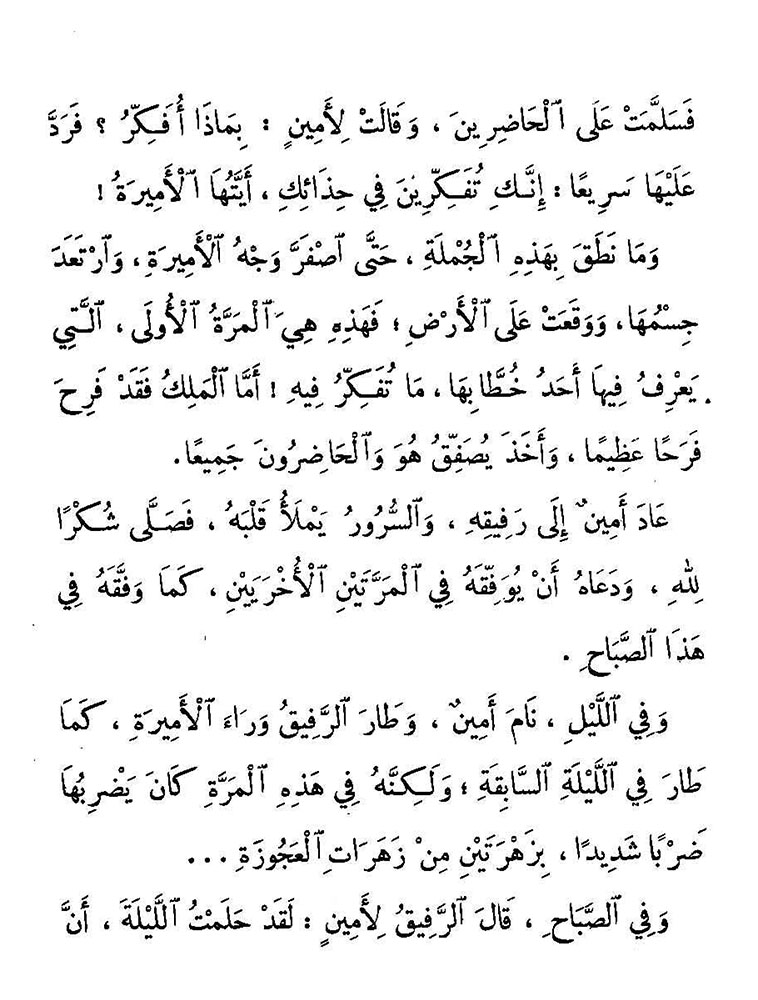 فَسَلَّمَتْ عَلَى ٱلْحَاضِرِينَ ، وَقَالَتْ لِأَمِينٍ : بِمَاذَا أُفَكِّرُ ؟ فَرَدَّ
عَلَيْهَا سَرِيعًا : إِنَّكِ تُفَكِّرِينَ فِي حِذَائِكِ ، أَيَّتُهَا ٱلْأَمِيرَةُ !
وَمَا نَطَقَ بِهَذِهِ ٱلْجُمْلَةِ ، حَتَّى ٱصْفَرَّ وَجْهُ ٱلْأَمِيرَةِ ، وَٱرْتَعَدَ
جِسْمُهَا ، وَوَقَعَتْ عَلَى ٱلْأَرْضِ ؛ فَهَذِهِ هِيَ ٱلْمَرَّةُ ٱلْأُولَى ، ٱلَّتِي
يَعْرِفُ فِيهَا أَحَدُ خُطَّابِهَا ، مَا تُفَكِّرُ فِيهِ ! أَمَّا ٱلْمَلِكُ فَقَدْ فَرِحَ
فَرَحًا عَظِيمًا ، وَأَخَذَ يُصَفِّقُ هُوَ وَٱلْحَاضِرُونَ جَمِيعًا .
عَادَ أَمِينٌ إِلَى رَفِيقِهِ ، وَٱلسُّرُورُ يَمْلَأُ قَلْبَهُ ، فَصَلَّى شُكْرًا
لِلهِ ، وَدَعَاهُ أَنْ يُوَفِّقَهُ فِي ٱلْمَرَّتَيْنِ ٱلْأُخْرَيَيْنِ ، كَمَا وَفَّقَهُ فِي
هَذَا ٱلصَّبَاحِ .
وَفِي ٱللَّيْلِ ، نَامَ أَمِينٌ ، وَطَارَ ٱلرَّفِيقُ وَرَاءَ ٱلْأَمِيرَةِ ، كَمَا
طَارَ فِي ٱللَّيْلَةِ ٱلسَّابِقَةِ ؛ وَلَكِنَّهُ فِي هَذِهِ ٱلْمَرَّةِ كَانَ يَضْرِبُهَا
ضَرْبًا شَدِيدًا ، بِزَهْرَتَيْنِ مِنْ زَهَرَاتِ ٱلْعَجُوزَةِ ...
وَفِي ٱلصَّبَاحِ ، قَالَ ٱلرَّفِيقُ لِأَمِينٍ : لَقَدْ حَلَمْتُ ٱللَّيْلَةَ ، أَنَّ